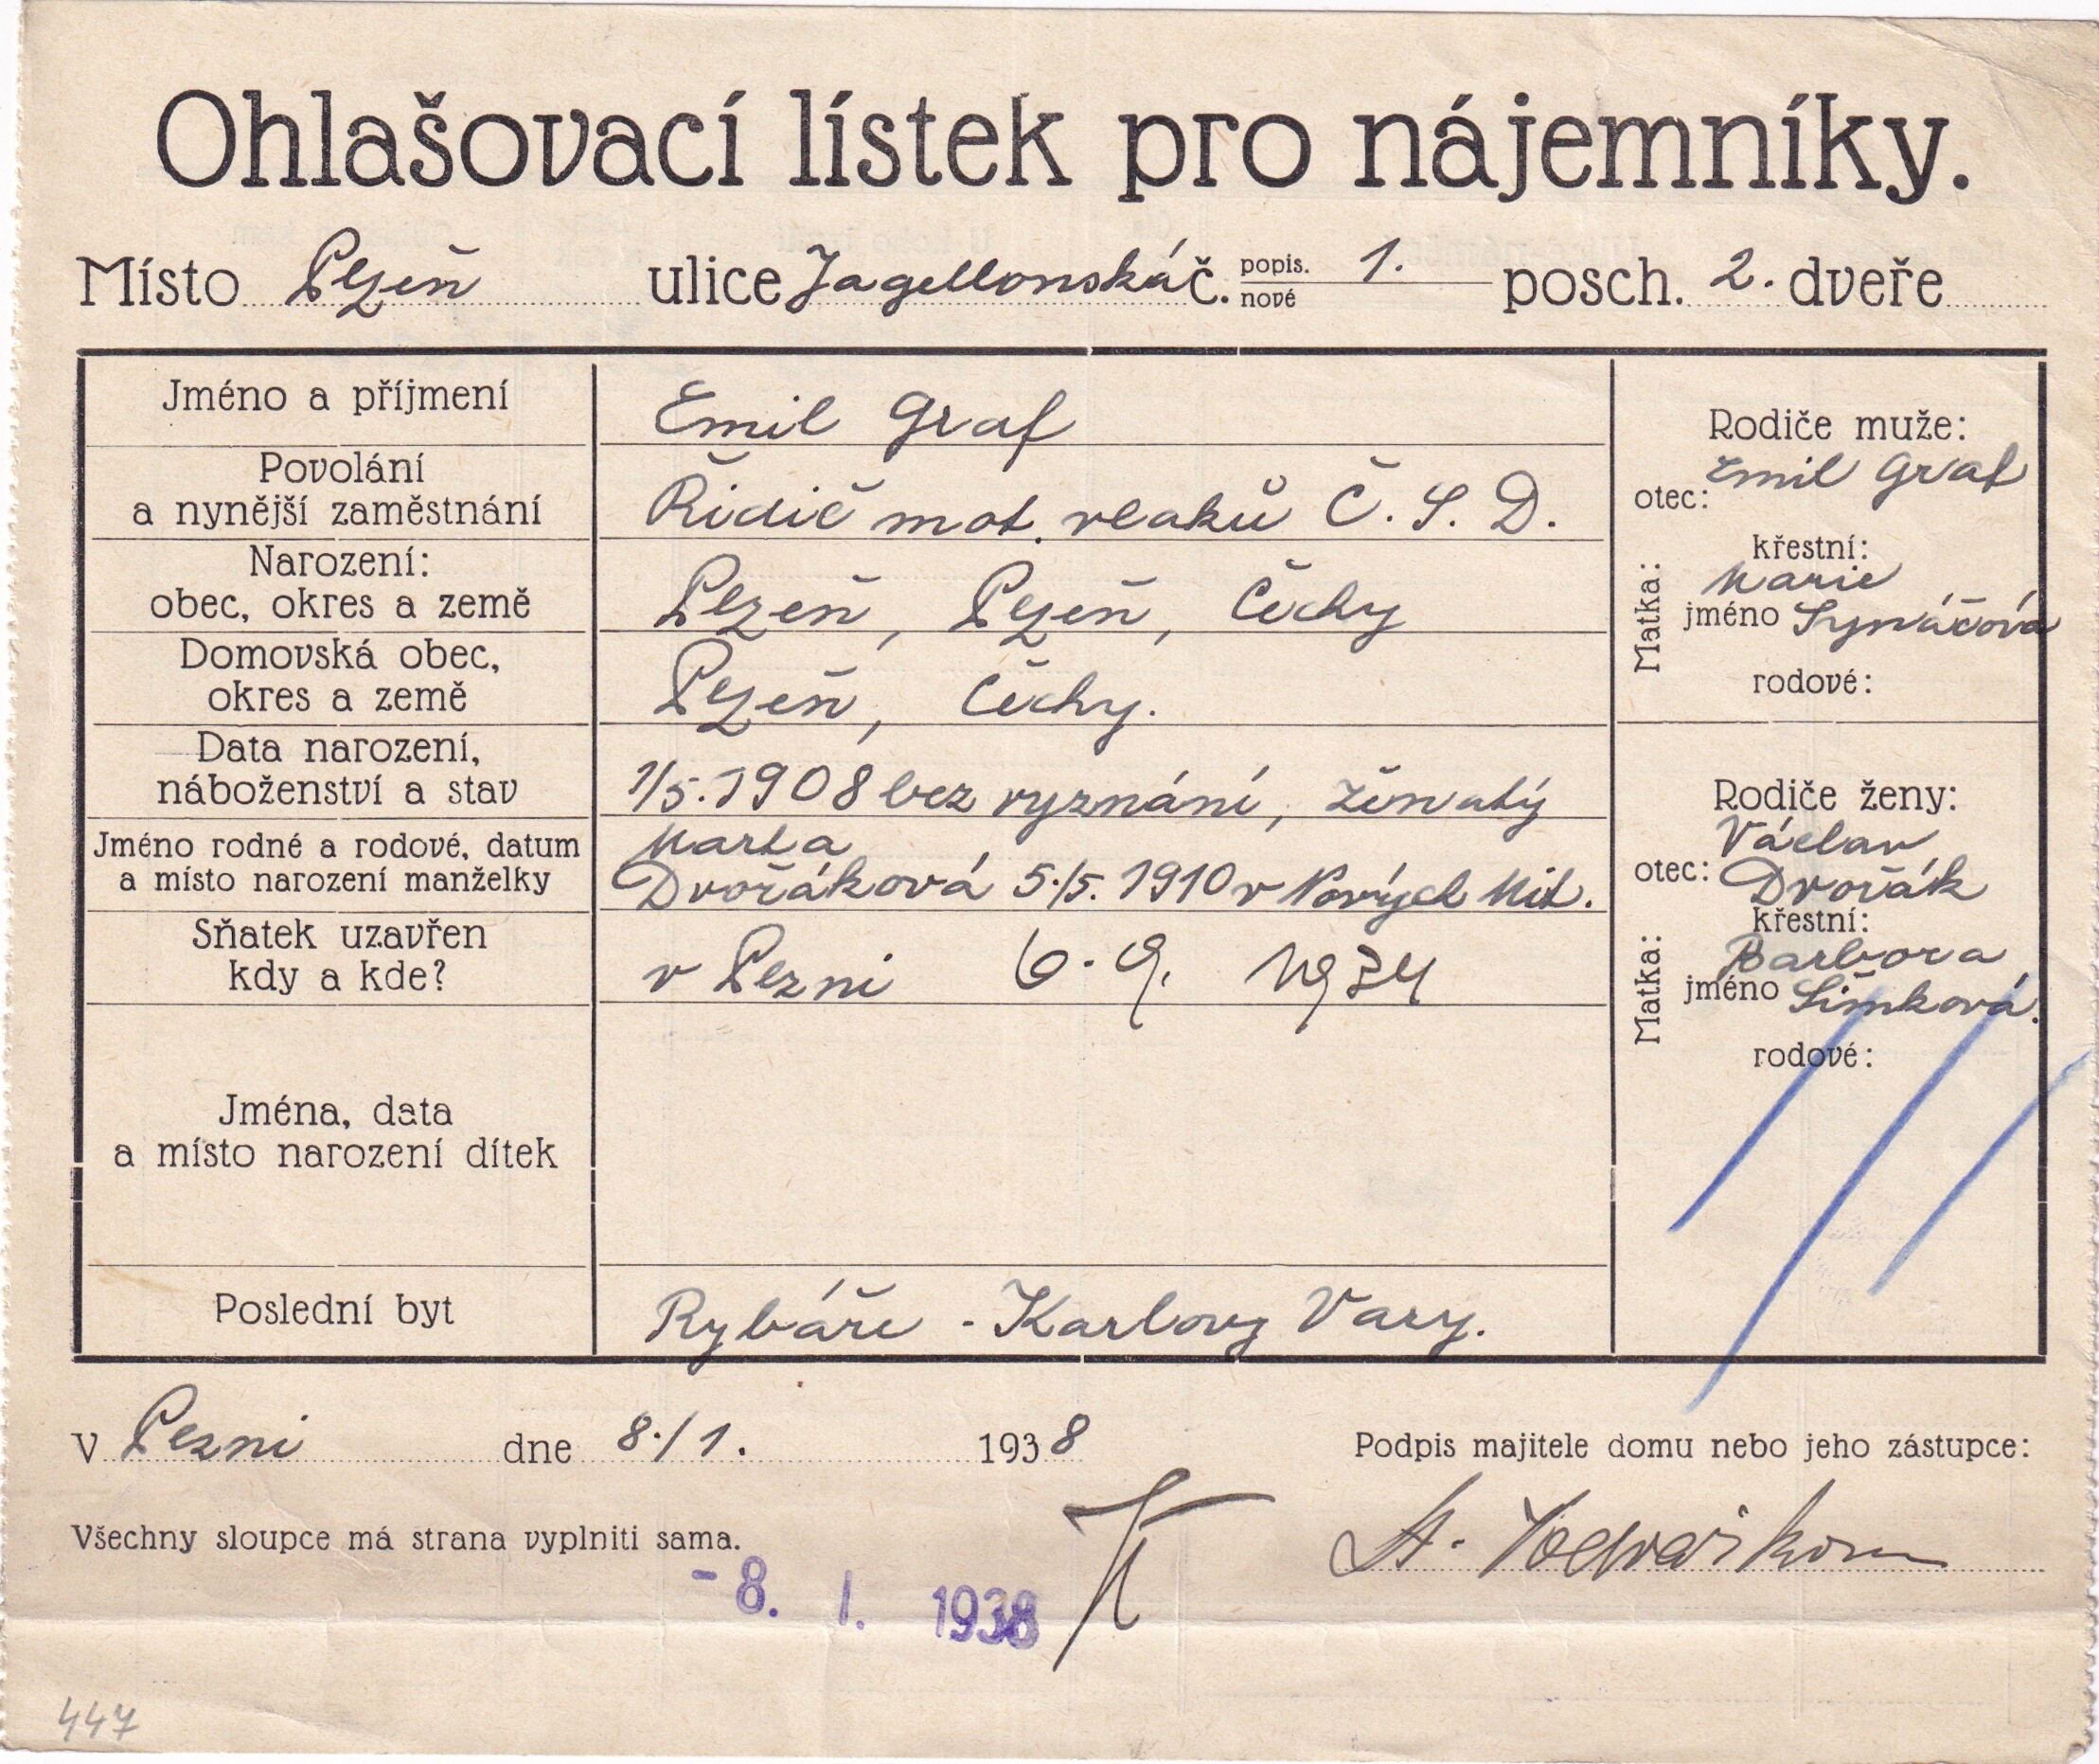 Ohlašovací lístek pro nájemníky.
Místo Plzeň ulice Jagellonská č. popis. nové 1. posch. 2. dveře
Jméno a příjmení
Emil Graf
Povolání
a nynější zaměstnání
Řidič mot. vlaků Č. S. D.
Narození:
obec, okres a země
Plzeň, Plzeň, Čechy
Domovská obec,
okres a země
Plzeň, Čechy.
Data narození,
náboženství a stav
1/5. 1908 bez vyznání, ženatý
Jméno rodné a rodové, datum
a místo narození manželky
Marta
Dvořáková 5./5. 1910 v Nových Mit.
Sňatek uzavřen
kdy a kde?
v Plzni 6. 9. 1934
Jména, data
a místo narození dítek
Poslední byt
Rybáře - Karlovy Vary.
Rodiče muže:
otec: Emil Graf
Matka:
křestní:
Marie
jméno
rodové:
Rodiče ženy:
Václav
otec: Dvořák
Matka:
křestní:
Barbora
jméno Šimková.
rodové:
V Plzni dne 8./1. 1938
Podpis majitele domu nebo jeho zástupce:
Všechny sloupce má strana vyplniti sama.
-8. I. 1938
447